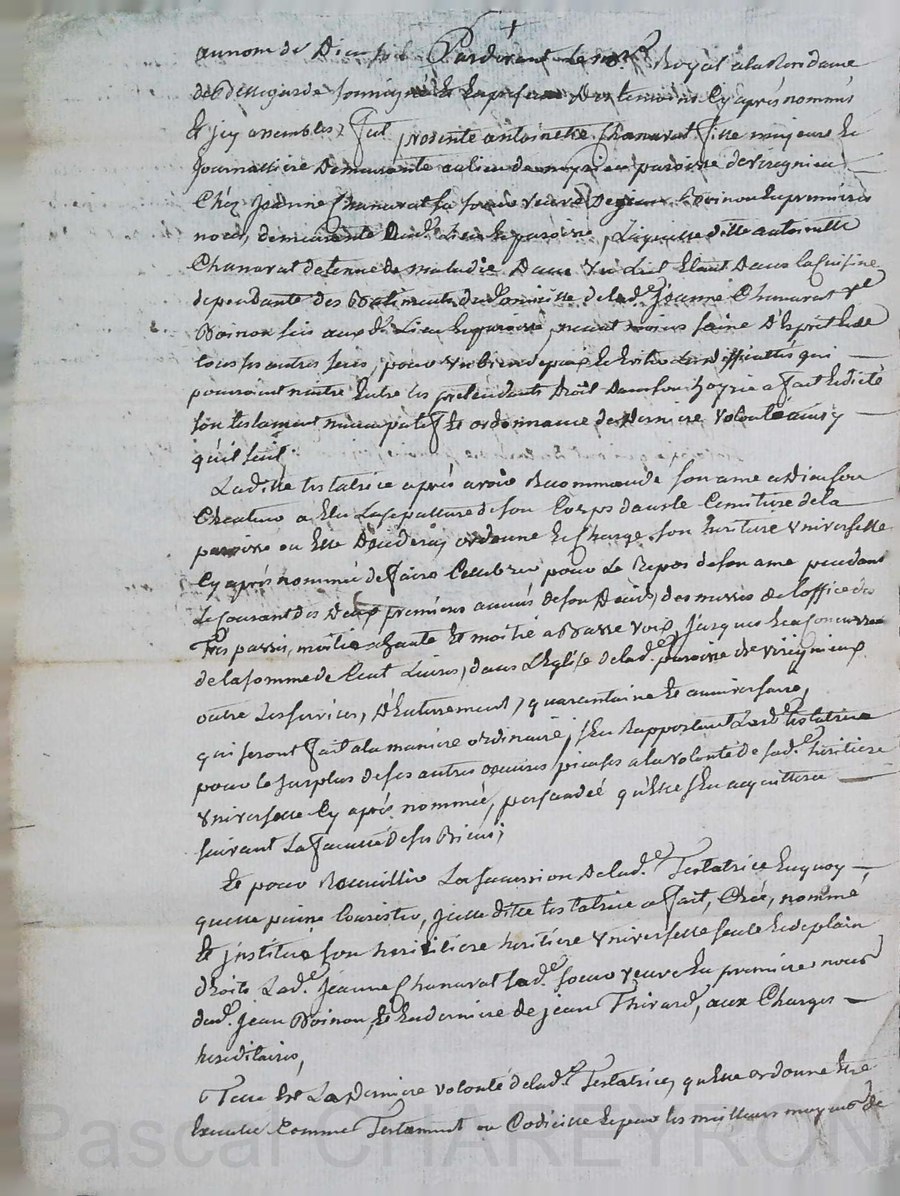 au nom de Dieu soit Pardevant le no.re Royal a la Residance
de Bellegarde soussigné et En presence Des temoins Cy aprés nommés
et icy assemblés, fut presente antoinette Chanavat fille majeure et
Journalliere Demeurante au lieu de paroisse de virignieu
Chés Jeanne Chanavat sa soeur veuve De jean Boinon En premieres
noces, demeurante aud. Lieu et paroisse, Laquelle ditte antoinette
Chanavat detenue de maladie Dans Un Lit Etant Dans la Cuisine
dependante des Batiments du Domicille de lad.e Jeanne Chanavat v.e
Boinon sis aux d. Lieu et paroisse, neant moins saine D'Esprit et de
tous ses autres sens, pour Un bien de paix et Eviter Les difficultés qui
pourroient naitre Entre les pretendants Droit Dans son hoyrie a fait et dicté
son testament nuncupatif et ordonnance de Derniere volonté ainsy
qu'il suit
Laditte testatrice aprés avoir Recommandé son ame a Dieu son
Createur a Elu La sepulture de son Corps dans le Cimitiere de la
paroisse ou Elle Deceдera, ordonne et Charge son heritiere Universelle
Cy aprés nommée de faire Cellebrer pour Le Repos de son ame pendant
Le Courant des Deux premieres années de son Decés, des messes de L'office des
Trépassés, moitié a haute et moitié a Basse voix jusques En Concurrence
de la somme de Cent Livres, dans L'Eglise de lad.e paroisse de virignieux
outre Les services, D'Enterrement, quarantaine et anniversaire,
qui seront fait a la maniere ordinaire, s'En Rapportant Lad.e testatrice
pour le surplus de ses autres oeuvres pieuses a la volonté de sad.e heritiere
Universelle Cy aprés nommée, persuadée qu'Elle s'En acquittera
suivant La faculté de ses Biens;
Et pour Recueillir La succession De lad.e Testatrice En quoy
quelle puisse Consister, icelle ditte testatrice a fait, Créé, nommé,
Et institué son heritiere Universelle seule et de plain
droits Lad.e Jeanne Chanavat sad.e soeur veuve En premieres noces
dud. Jean Boinon, et En derniere de jean Thivard, aux Charges
hereditaires,
Telle Est La Derniere volonté de lad.e Testatrice, qu'Elle ordonne Etre
Executée Comme Testament ou Codicille et par les meilleurs moyens de
Pascal CHAREYRON